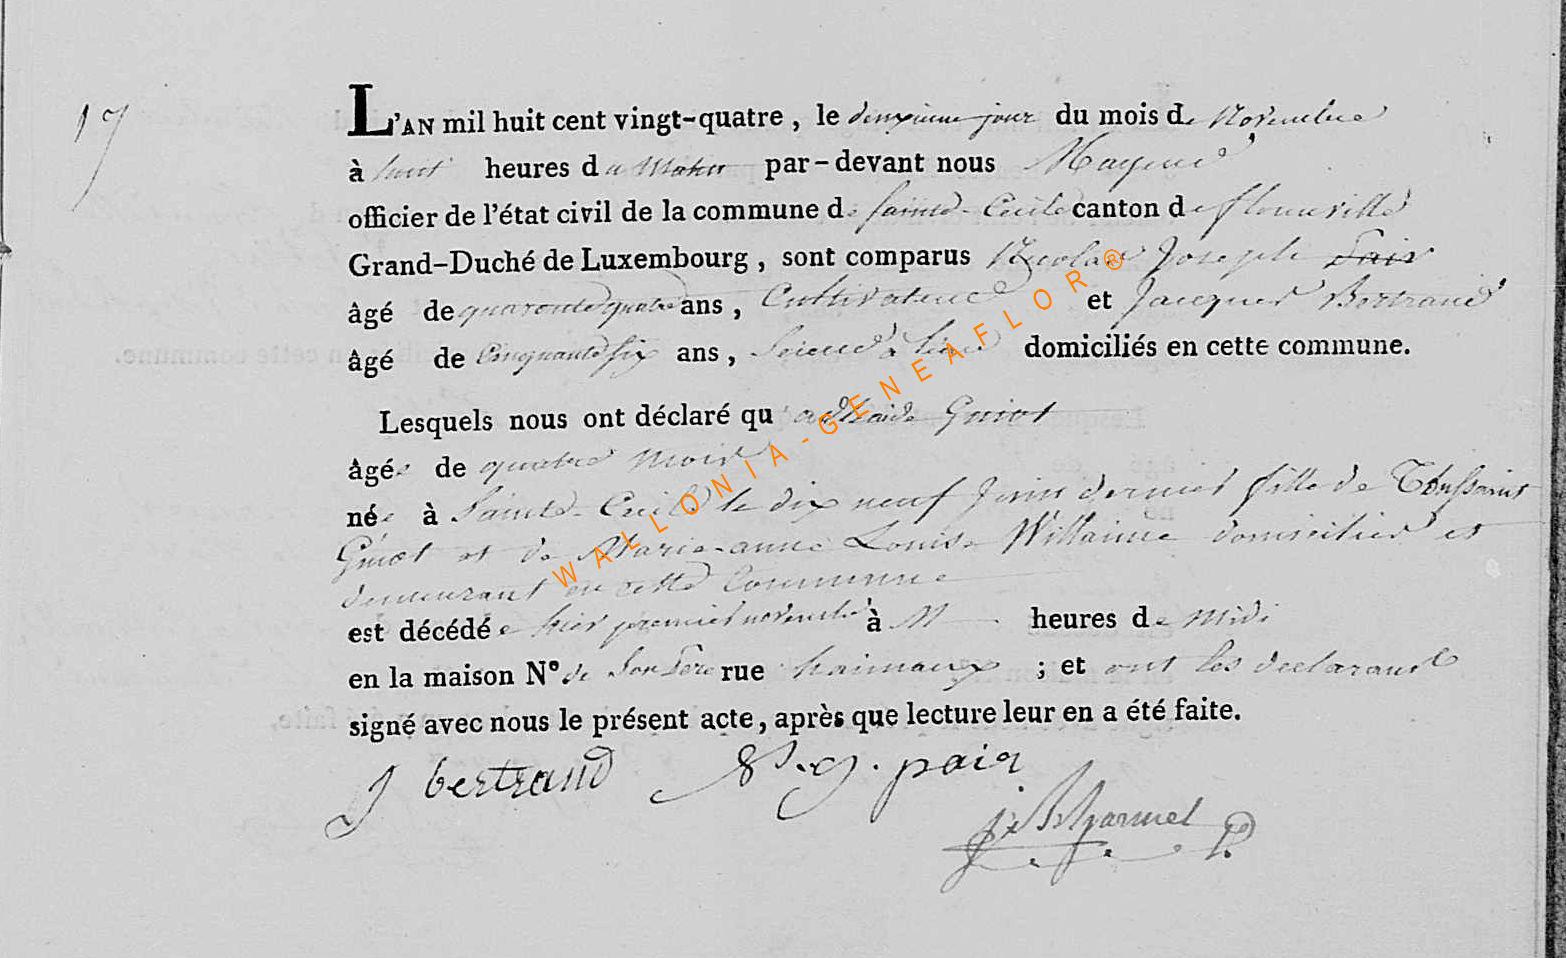 17
L'AN mil huit cent vingt-quatre, le deuxieme jour du mois de Novembre
à huit heures du Matin par-devant nous
officier de l'état civil de la commune de Sainte-Cecile canton de florenville
Grand-Duché de Luxembourg, sont comparus Nicolas Joseph Pair
âgé de quarante quatre ans, Cultivateur et Jacques Bertrand
âgé de Cinquante six ans, domiciliés en cette commune.
Lesquels nous ont déclaré qu' Guiot
âgée de quatre mois
née à Sainte-Cecile le dix neuf Juin dernier fille de Toussaint
Guiot et de Marie-anne Louise Willaime domicilier et
demeurant en cette Commune
est décédée hier premier novembre à heures de midi
en la maison N° de Son Pere rue haimaux ; et ont les declarant
signé avec nous le présent acte, après que lecture leur en a été faite.
J bertrand N. J. pair
WALLONIA-GENEAFLOR®